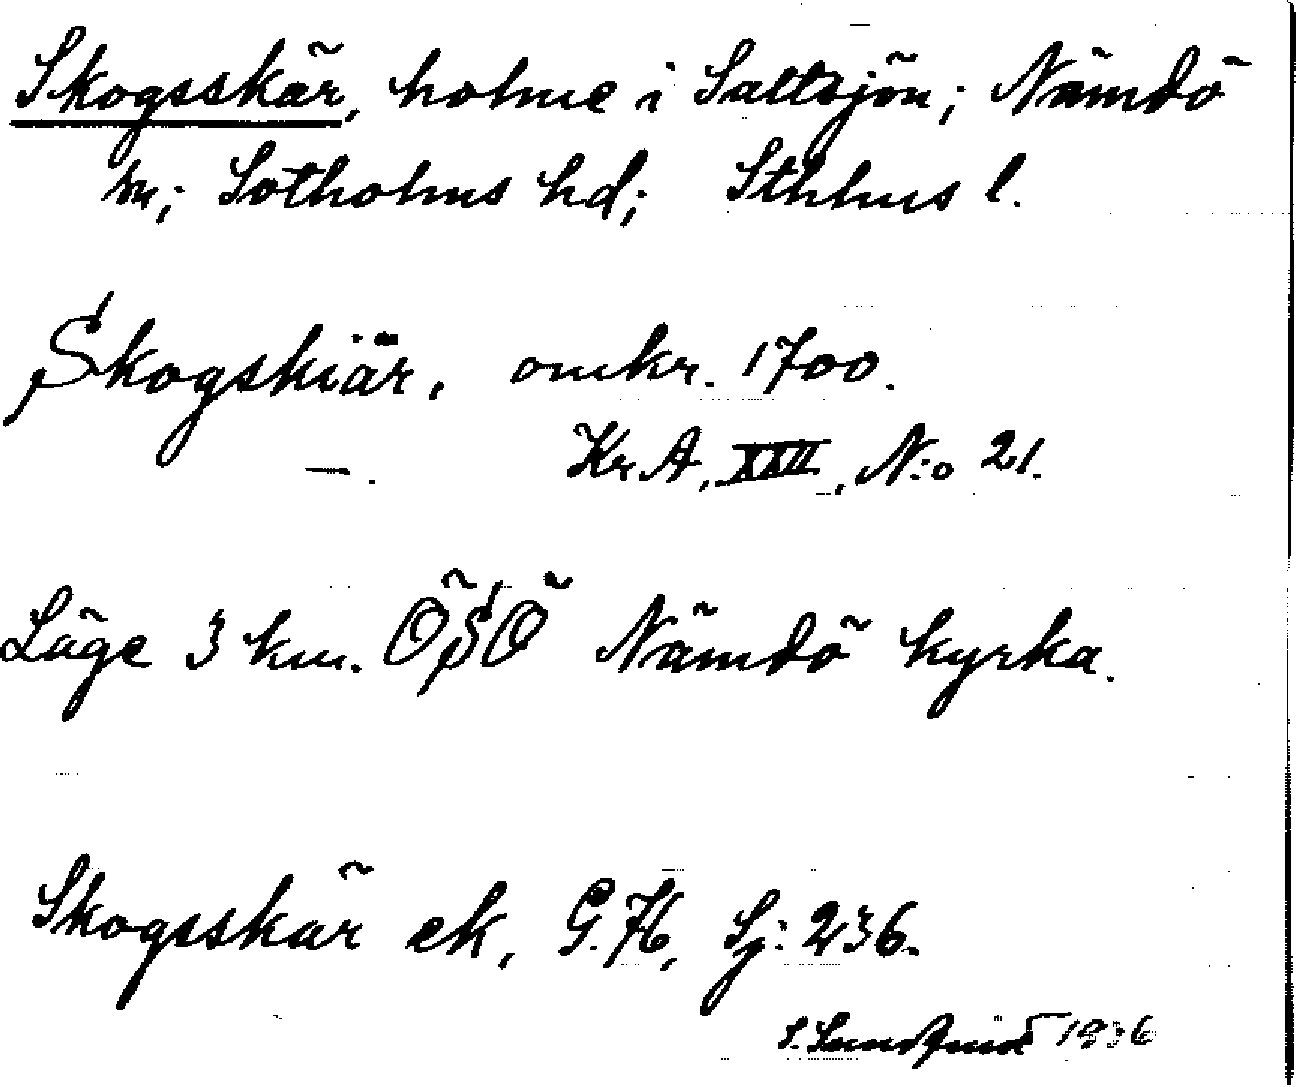 Skogsskär, holme i Saltsjön; Nämdö
sn; Sotholms hd; Sthlms l.
Skogskiär, omkr. 1700.
—. Kr.A, XXII, N:o 21.
Läge 3 km. ÖSÖ Nämdö kyrka.
Skogsskär ek, G.76, Sj: 236.
1936